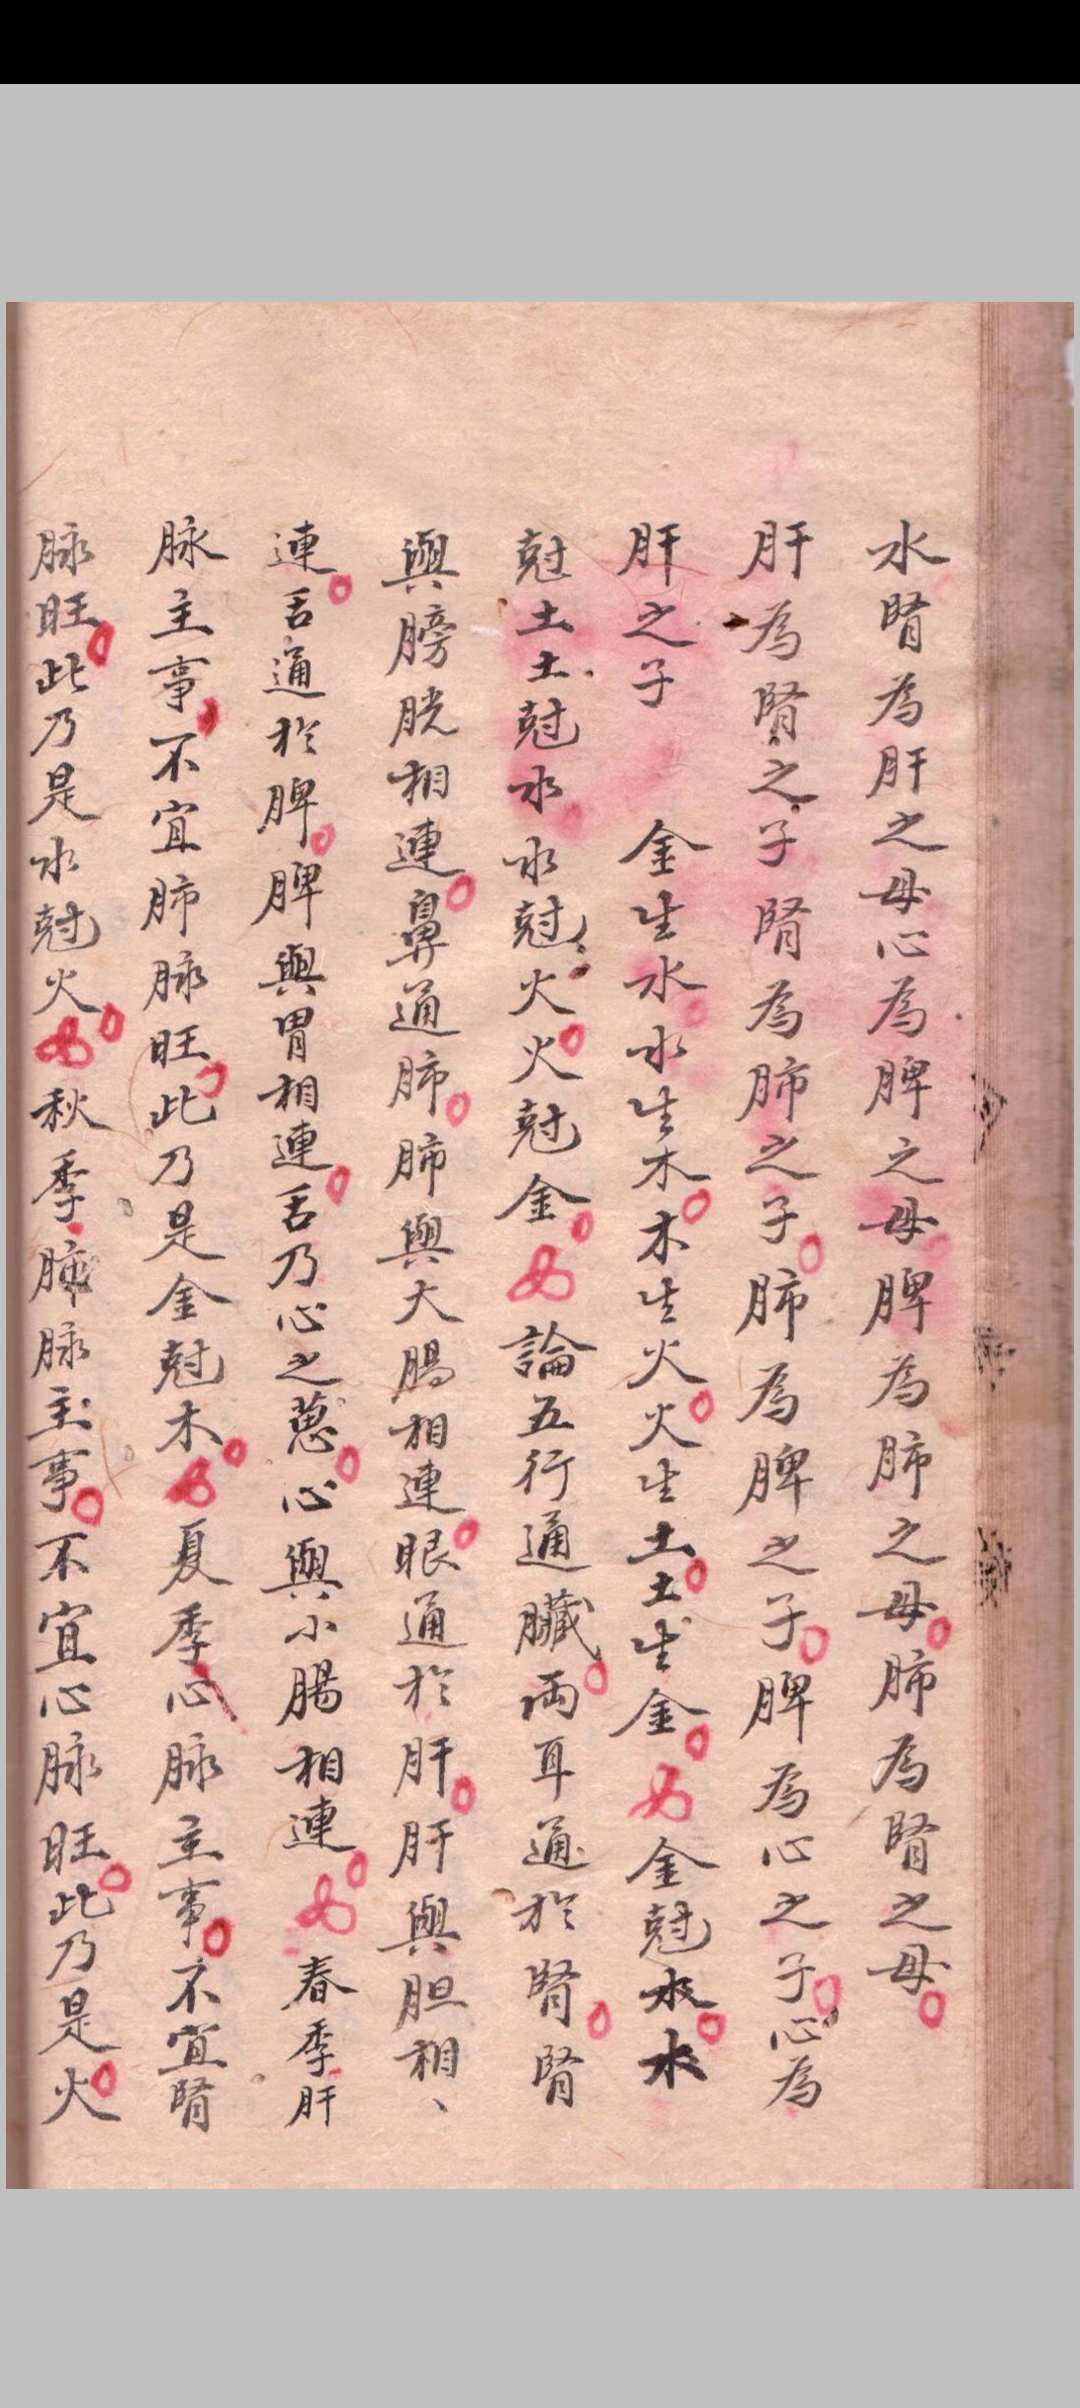 水腎為肝之母心為脾之母脾為肺之母肺為腎之母
肝為腎之子腎為肺之子肺為脾之子脾為心之子心為
肝之子 金生水水生木木生火火生土土生金 金尅木木
尅土土尅水水尅火火尅金 論五行通臟両耳通於腎腎
與膀胱相連鼻通肺肺與大腸相連眼通於肝肝與胆相、
連舌通於脾脾與胃相連舌乃心之蒽心與小腸相連 春季肝
脉主事不宜肺脉旺此乃是金尅木 夏季心脉主事不宜腎
脉旺此乃是水尅火 秋季肺脉主事不宜心脉旺此乃是火